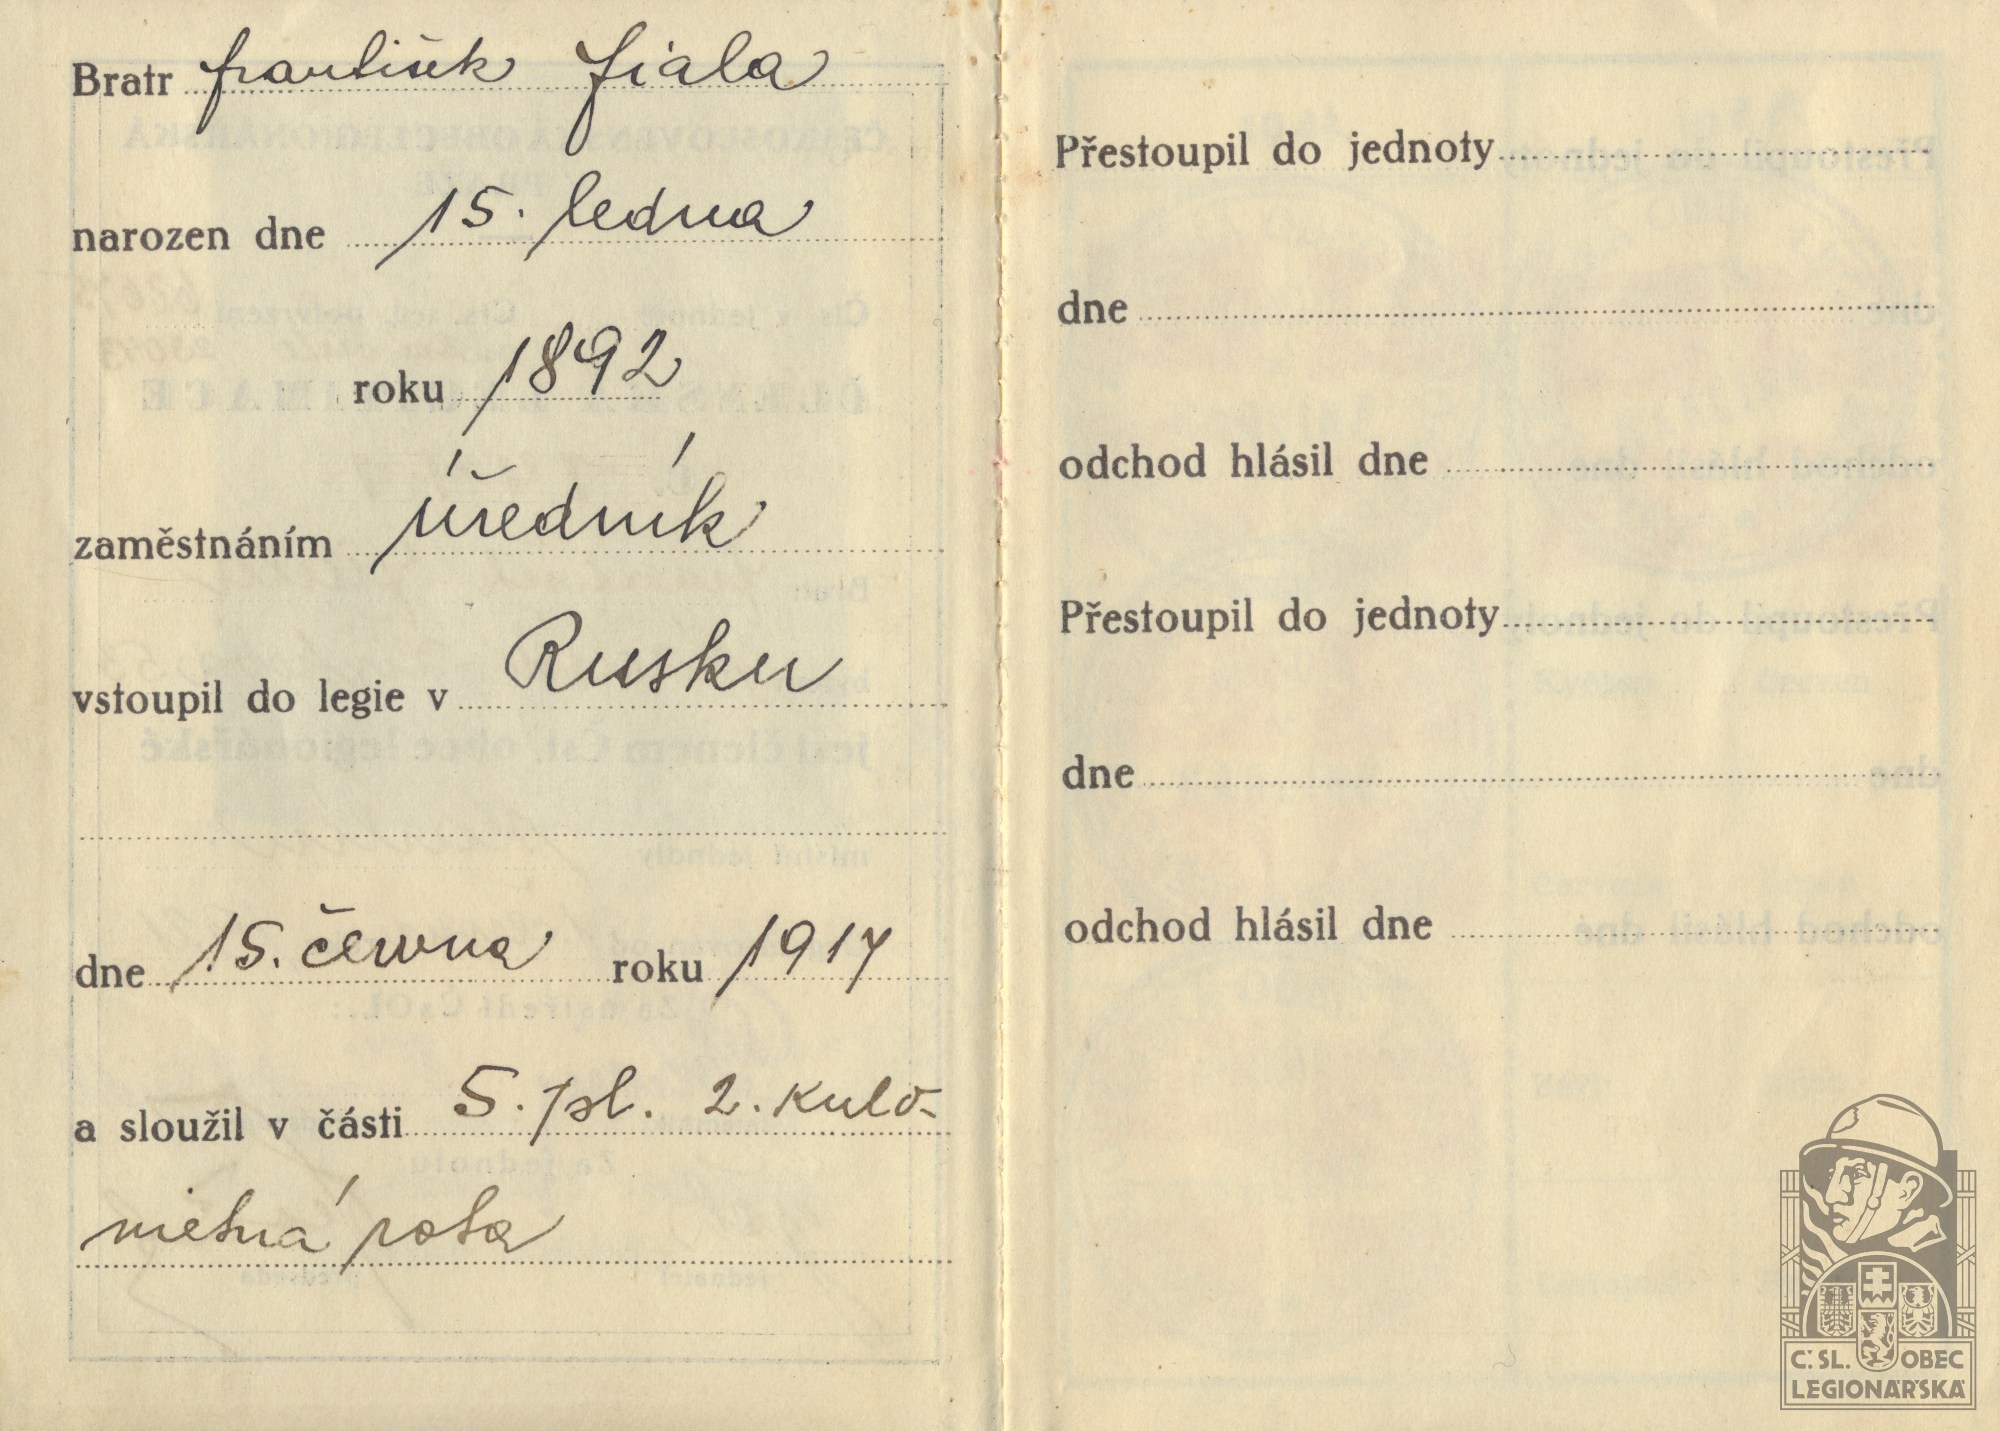 Bratr František Fiala
narozen dne 15. ledna
roku 1892
zaměstnáním úředník
vstoupil do legie v Rusku
dne 15. června roku 1917
a sloužil v části 5. pl. 2. kulo-
metná rota
Přestoupil do jednoty
dne
odchod hlásil dne
Přestoupil do jednoty
dne
odchod hlásil dne
Č. SL. OBEC
LEGIONÁŘSKÁ